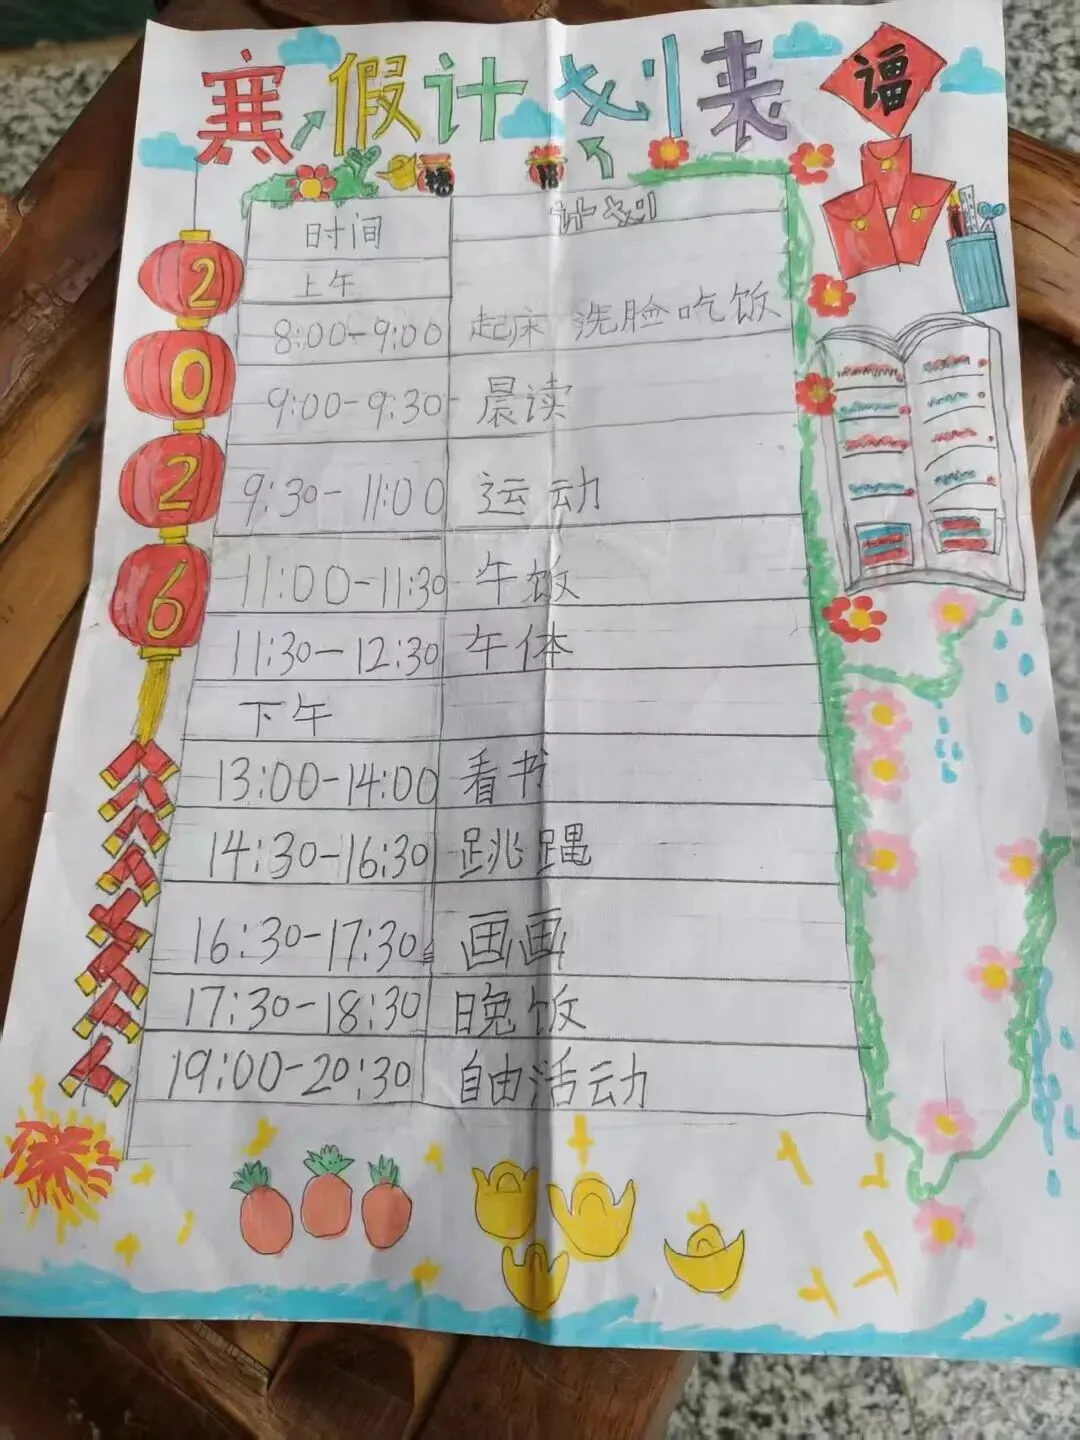 寒假计划表
福
2026
时间 计划
上午
8:00-9:00 起床 洗脸吃饭
9:00-9:30 晨读
9:30-11:00 运动
11:00-11:30 午饭
11:30-12:30 午体
下午
13:00-14:00 看书
14:30-16:30 跳
16:30-17:30 画画
17:30-18:30 晚饭
19:00-20:30 自由活动